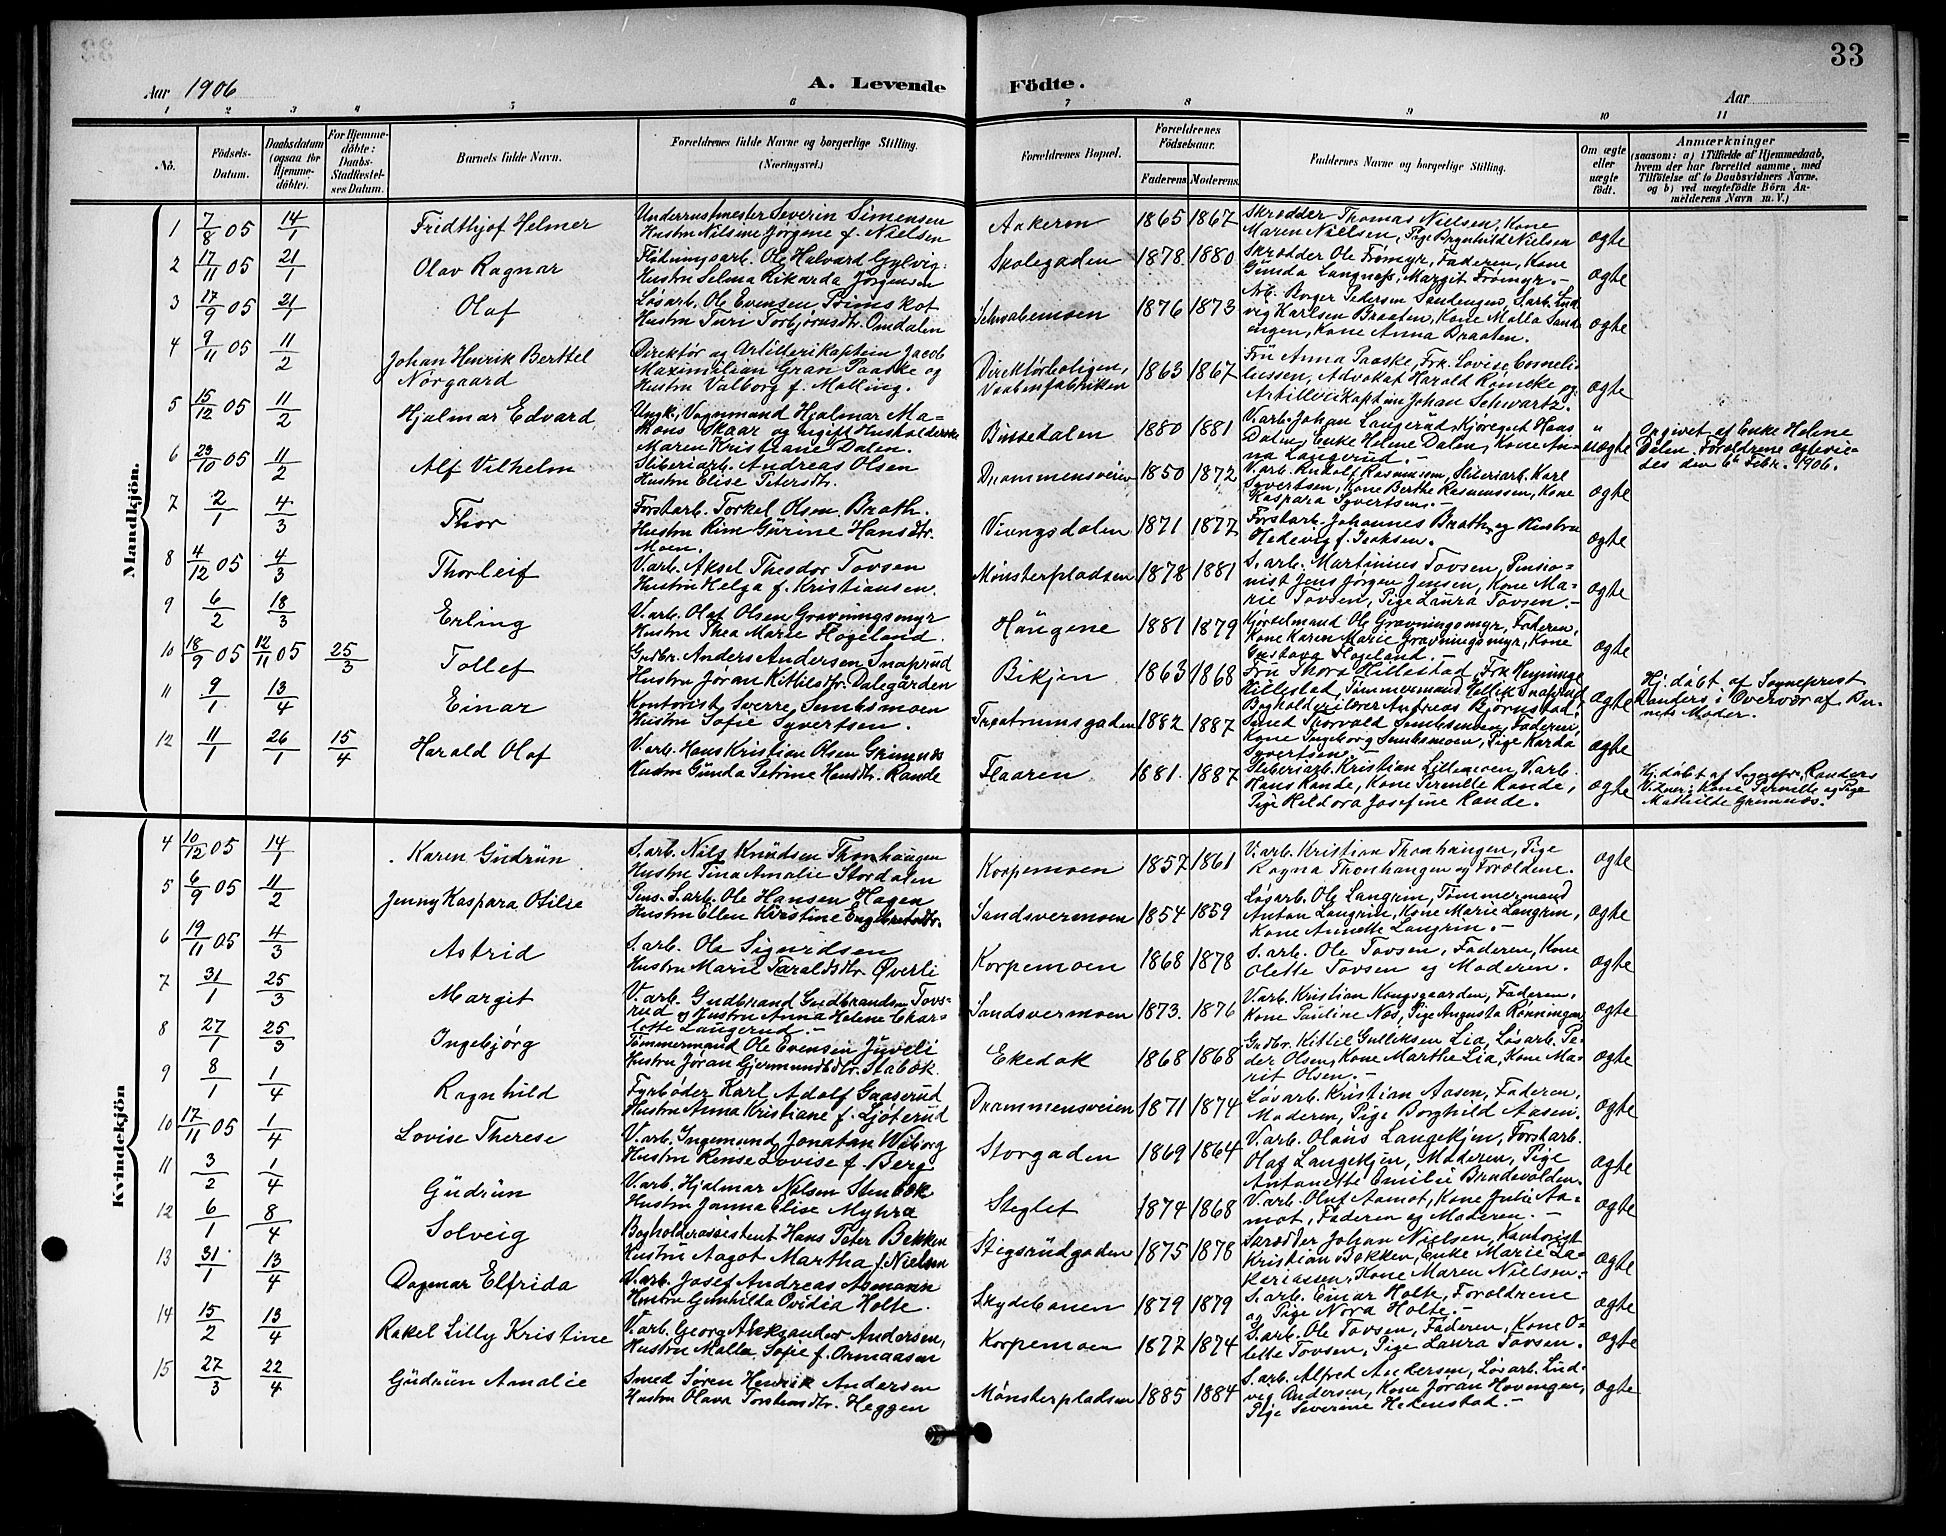 33
Aar 1906
A. Levende Födte.
Aar
1 2 3 4 5 6 7 8 9 10 11
No.
Födsels-Datum.
Daabsdatum (ogsaa for Hjemme-döbte).
For Hjemme-döbte: Daabs-Stadfæstel-ses Datum.
Barnets fulde Navn.
Forældrenes fulde Navne og borgerlige Stilling. (Næringsvei.)
Forældrenes Bopæl.
Forældrenes Födselsaar.
Faderens. Moderens.
Faddernes Navne og borgerlige Stilling.
Om ægte eller uægte födt.
Anmærkninger
(saasom: a) i Tilfælde af Hjemmedaab, hvem der har forrettet samme, med Tilföielse af to Daabsvidners Navne, og b) ved uægtefödte Börn An-melderens Navn m. V.)
Mandkjön.
1 7/8 05 14/1 Fridthjof Helmer
Underrustmester Severin Simensen
Hustru Nilsine Jørgine f. Nielsen
Aakeren 1865 1867
Skrædder Thomas Nielsen, Kone
Maren Nielsen, Pige Brynhild Nielsen
ægte
2 17/11 05 21/1 Olav Ragnar
Flødningsarb. Ole Halvard Gylvig.
Hustru Selma Rikarda Jørgensen
Skolegaden 1878 1880
Skrædder Ole Frømyr, Faderen, Kone
Gunda Langnæss, Margit Frømyr.-
ægte
3 17/9 05 21/1 Olaf
Løsarb. Ole Evensen
Hustru Turi Torbjørnsdtr. Omdalen
Schwabemoen 1876 1873
Arb. Borger Pedersen Sandengen, S.arb. Lud-
vig Karlsen Braaten, Kone Malla Sand-
engen, Kone Anna Braaten.
ægte
4 9/11 05 11/2 Johan Henrik Berttel
Nørgaard
Direktør og Artillerikaptein Jacob
Maximilian Gran Paaske og
Hustru Valborg f. Malling.
Direktørboligen,
Vaabenfabriken 1863 1867
Fru Anna Paaske, Frk. Lovise Corneli-
ussen, Advokat Harald Romcke og
Artillerikaptein Johan Schwartz.
ægte
5 15/12 05 11/2 Hjalmar Edvard
Ungk. Vognmand Hjalmar Ma-
thons Skaar og ugift Husholderske
Maren Kristiane Dalen.
Binsedalen 1880 1881
V.arb. Johan Langerud, Kjøregut Hans
Dalen, Enke Helene Dalen, Kone An-
na Langerud.-
uægte
Opgivet af Enke Helene
Dalen. Forældrene ægtevie-
des den 6te Febr. 1906.
6 23/10 05 11/2 Alf Vilhelm
Sliberiarb. Andreas Olsen
Hustru Elise Petersdtr.
Drammensveien 1850 1872
V.arb. Rudolf Rasmussen, Sliberiarb. Karl
Syvertsen, Kone Berthe Rasmussen, Kone
Kaspara Syvertsen.-
ægte
7 2/1 4/3 Thor
Forstarb. Torkel Olsen Brath.
Hustru Gurine Hansdtr.
Moen.
Vinngsdalen 1871 1877
Forstarb. Johannes Brath og Hustru
Hedevig f. Isaksen.
ægte
8 4/12 05 4/3 Thorleif
V.arb. Aksel Theodor Tovsen
Hustru Helga f. Kristiansen.
Mønsterpladsen 1878 1881
S.arb. Martinius Tovsen, Pensio-
nist Jens Jørgen Jensen, Kone Ma-
rie Tovsen, Pige Laura Tovsen.-
ægte
9 6/2 18/3 Erling
V.arb. Olaf Olsen Gravningsmyr
Hustru Thea Marie Flogeland.
Haugene 1881 1879
Kjørelmand Ole Gravningsmyr, Faderen,
Kone Karen Marie Gravningsmyr, Kone
Gustava Flogeland.-
ægte
10 18/9 05 12/11 05 25/3 Tollef
Gudbr. Anders Andersen Snaprud
Hustru Joran Kittilsdtr. Dalegården
Bikjen 1863 1868
Fru Thora Hillestad, Frk. Henninge
Hillestad, Tømmermand Hellik Snaprud
ægte
Hj. døbt af Sogneprest
Randers i Overvær af Bar-
nets Moder.
11 9/1 13/4 Einar
Kontorist Sverre Sembsmoen
Hustru Sofie Syvertsen.
Treatrumsgaden 1882 1887
Bogholderilærer Andreas Bjørnstad,
Smed Thorvald Sembsmoen, Faderen,
Kone Ingeborg Sembsmoen, Pige Karda
Syvertsen.-
ægte
12 11/1 26/1 15/4 Harald Olaf
V.arb. Hans Kristian Olsen Grimnæs
Hustru Gunda Petrine Hansdtr. Rande
Flaaren 1881. 1887
Sliberiarb. Kristian Lillemoen, V.arb.
Hans Rande, Kone Pernille Rande,
Pige Haldora Josefine Rande.
ægte
Hj. døbt af Sognepr. Randers
Vidner: Kone Pernille og Pige
Mathilde Grimnæs.
Kvindekjön
4 10/12 05 14/1 Karen Gudrun
S.arb. Nils Knudsen Thonhaugen
Hustru Tina Amalie Stordalen
Korpemoen 1857 1861
V.arb. Kristian Thonhaugen, Pige
Ragna Thonhaugen og Forældrene.
ægte
5 6/9 05 11/2 Jenny Kaspara Otilie
Pens. S.arb. Ole Hansen Hagen
Hustru Ellen Kristine Engebretsdtr.
Sandsvermoen 1854 1859
Løsarb. Ole Langrin, Tømmermand
Anton Langrin, Kone Marie Langrin,
Kone Annette Langrin.-
ægte
6 19/11 05 4/3 Astrid
S.arb. Ole Sigurdsen
Hustru Marie Taraldsdtr. Øverli
Korpemoen 1868 1878
S.arb. Ole Tovsen, Faderen, Kone
Olette Tovsen og Moderen.
ægte
7 31/1 25/3 Margit
V.arb. Gudbrand Gudbrandsen Tovs-
rud og Hustru Anna Helene Char-
lotte Langerud.-
Sandsvermoen 1873. 1876
V.arb. Kristian Kongsgaarden, Faderen,
Kone Pauline Næs, Pige Augusta Rønningen
ægte
8 27/1 25/3 Ingebjørg
Tømmermand Ole Evensen Juveli
Hustru Jøran Gjermundsdtr. Stabæk.
Ekedok 1868 1868
Gudbr. Kittil Gulliksen Lia, Løsarb. Pe-
der Olsen, Kone Marthe Lia, Kone Ma-
rit Olsen.-
ægte
9 8/1 1/4 Ragnhild
Fyrbøder Karl Adolf Gaaserud
Hustru Anna Kristiane f. Ljoterud
Drammensveien 1871 1874
Løsarb. Kristian Aasen, Faderen,
Moderen, Pige Borghild Aasen.
ægte
10 17/11 05 1/4 Lovise Therese
V.arb. Ingemund Jonatan Wiborg
Hustru Rinse Lovise f. Berg
Storgaden 1869 1864
V.arb. Olaus Langekjen, Forstarb.
Olaf Langekjen, Moderen, Pige
Antonette Emilie Brudevolden.
ægte
11 3/2 1/4 Gudrun
V.arb. Hjalmar Nilsen Stenbæk
Hustru Janna Elise Myhra
Steglet 1874 1868
V.arb. Oluf Aamot, Kone Julie Aa-
mot, Faderen og Moderen.-
ægte
12 6/1 8/4 Solveig
Bogholderassistent Hans Peter Bekken
Hustru Aagot Martha f. Nielsen
Stigsrudgaden 1875 1878
Skrædder Johan Nielsen, Kontorist
Kristian Bakken, Enke Marie Za-
kariassen, Kone Maren Nielsen.-
ægte
13 31/1 13/4 Dagmar Elfrida
V.arb. Josef Andreas Asmann
Hustru Gunhilda Ovidia Holte.
Skydebanen 1879 1879
S.arb. Einar Holte, Forældrene
og Pige Nora Holte.-
ægte
14 15/2 13/4 Rakel Lilly Kristine
V.arb. Georg Aleksander Andersen,
Hustru Malla Sofie f. Ormaasen
Korpemoen 1877 1874
S.arb. Ole Tovsen, Faderen, Kone O-
lette Tovsen, Pige Laura Tovsen.
ægte
15 27/3 22/4 Gudrun Amalie
Smed Søren Henrik Andersen
Hustru Olava Torstensdtr. Heggen
Mønsterpladsen 1885 1884
S.arb. Alfred Andersen, Løsarb. Lud-
vig Andersen, Kone Joran Hovengen,
Pige Severine Hedenstad.-
ægte